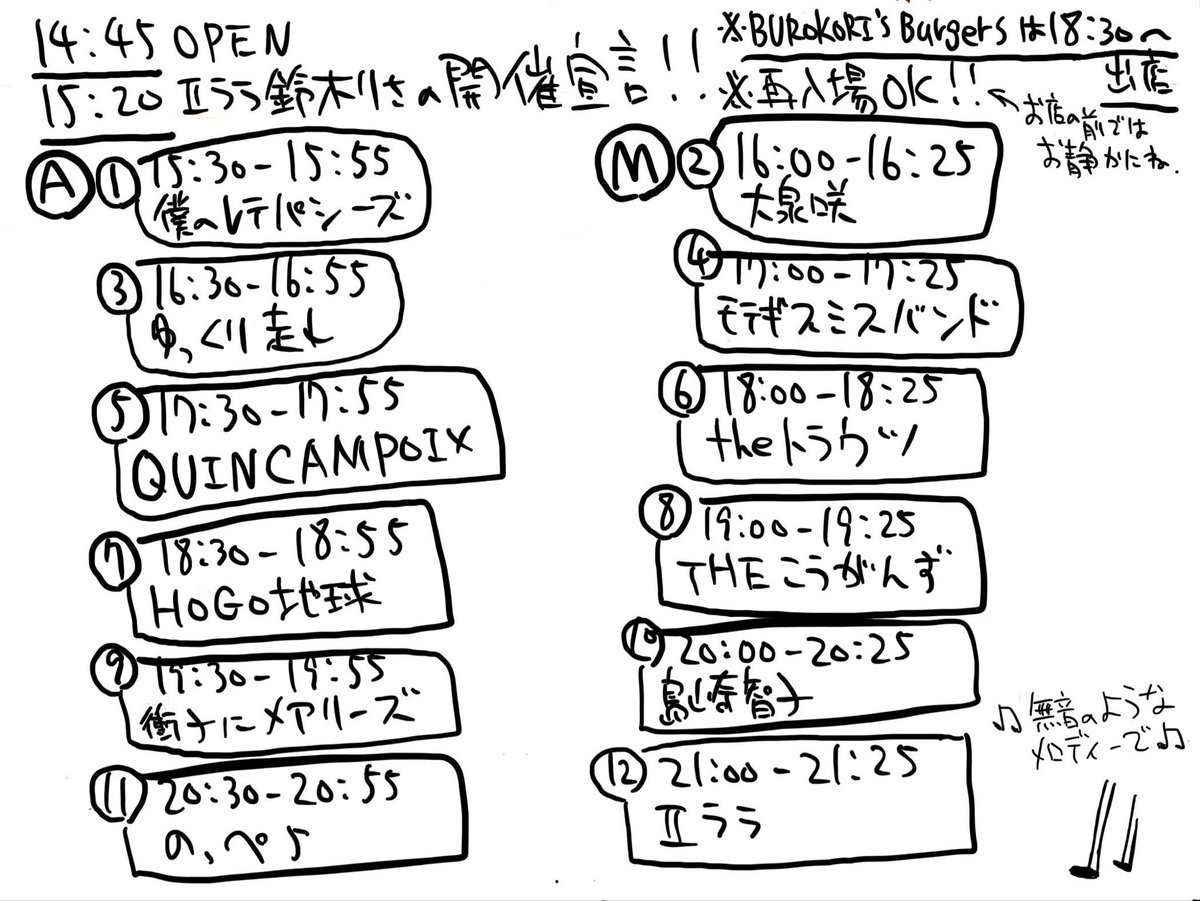 14:45 OPEN
15:20 IIララ鈴木りさの開催宣言!!
※BUROKORI's Burgersは18:30〜
出店
※再入場OK!!
お店の前では
お静かにね.
A
① 15:30-15:55
僕のレテパシーズ
③ 16:30-16:55
ゆっくり走れ
⑤ 17:30-17:55
QUINCAMPOIX
⑦ 18:30-18:55
HOGO地球
⑨ 19:30-19:55
衝子にメアリーズ
⑪ 20:30-20:55
のっぺら
M
② 16:00-16:25
大泉咲
④ 17:00-17:25
モテギスミスバンド
⑥ 18:00-18:25
theトラウツ
⑧ 19:00-19:25
THEこうがんず
⑩ 20:00-20:25
島崎智子
⑫ 21:00-21:25
IIララ
♫無音のような
メロディーで♫